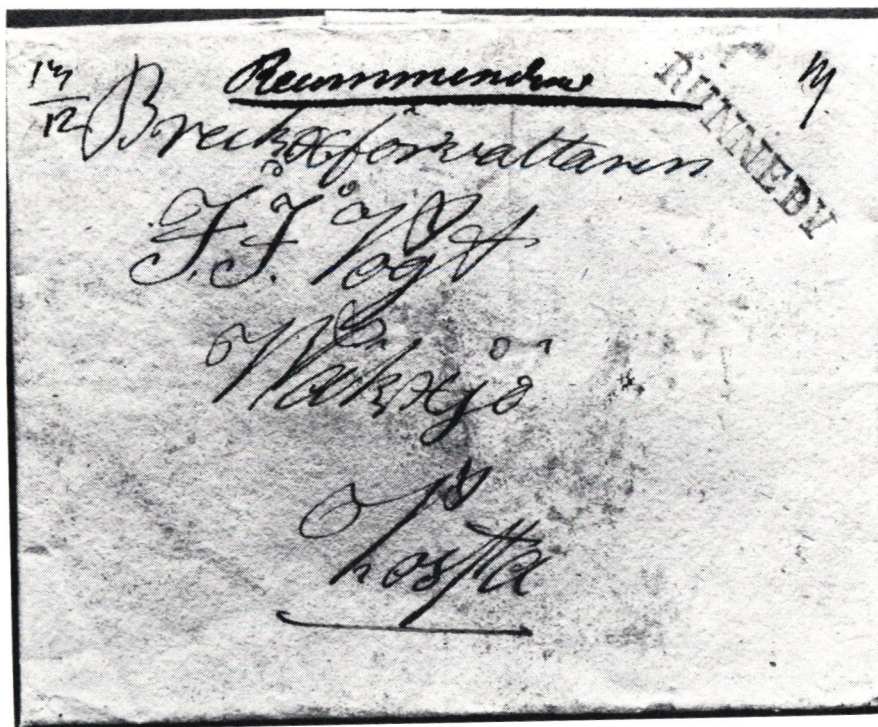 17/12
Recummendera
RUNNEBY
Bruksförvaltaren
F. F. Vogt
Wäksjö